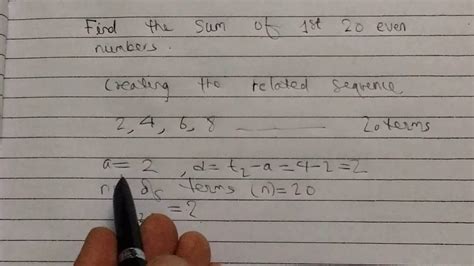 Find the sum of 1st 20 even
numbers.
Creating the related sequence
2, 4, 6, 8 ........ 20 terms
a = 2 , d = t₂ - a = 4 - 2 = 2
terms (n) = 20
= 2